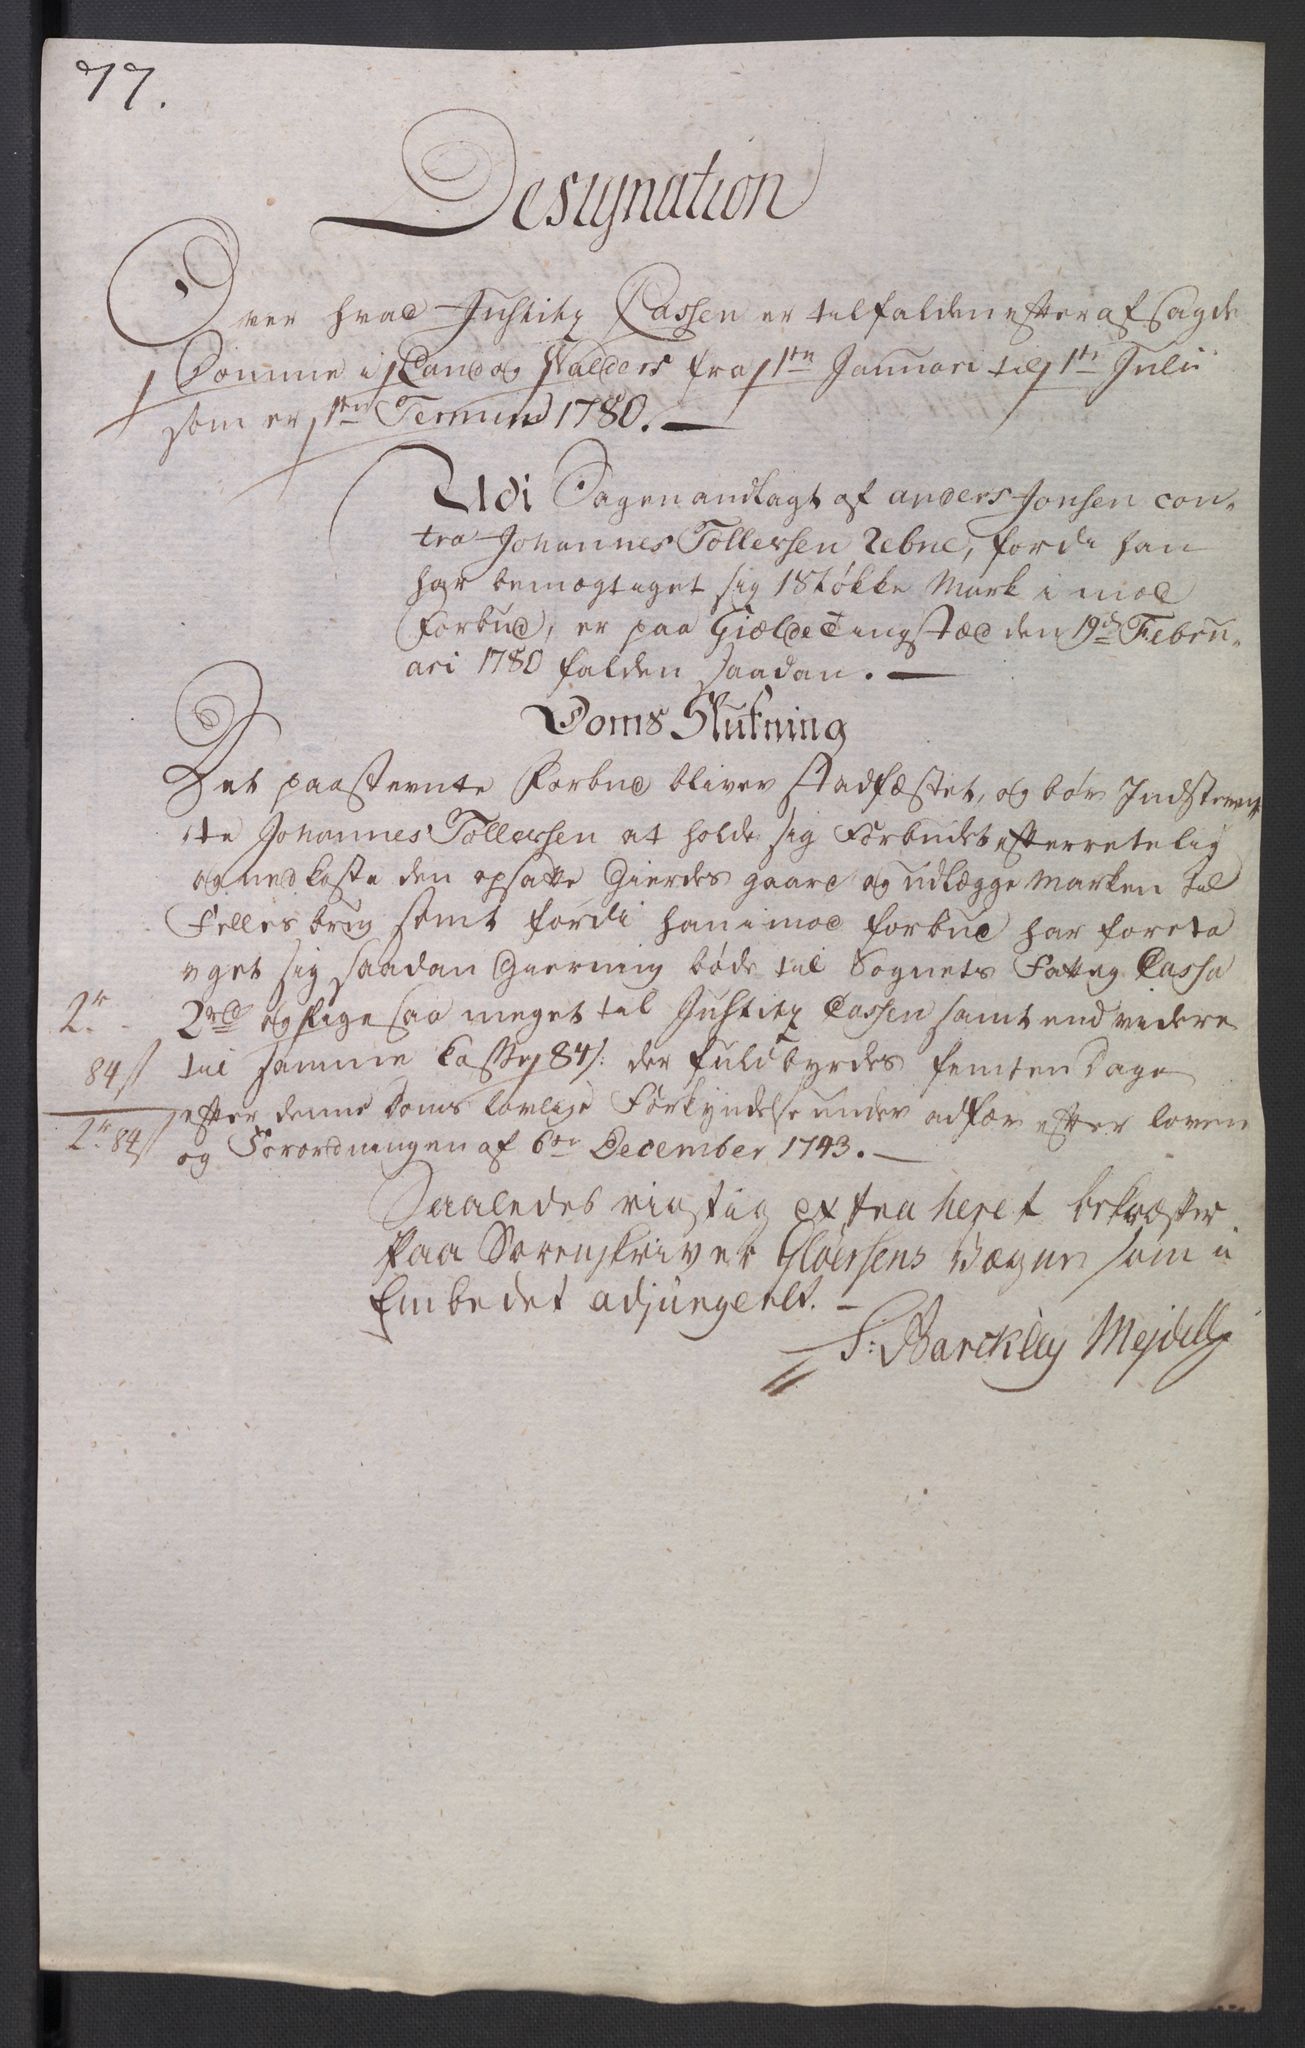 77.
Designation
Over hvad Justitz Cassen er tilfalden efter afsagde
Domme i Land og Valders fra 1ten Januari til 1te Julii
som er 1ten Termin 1780. —
Udi Sagen andlagt af anders Jonsen con-
tra Johannes Tollersen Rebne, fordi han
har bemægtiget sig 1 Støkke Mark i mod
Forbud, er paa Giælde Tingstæd den 19de Febru-
ari 1780 falden saadan. —
Doms Slutning
Det paastevnte Forbud bliver Stadfæstet, og bør Indstevn-
te Johannes Tollersen at holde sig Forbudet efterretelig
og nedkaste den opsatte Gierdes gaard og udlægge Marken til
Felles brug samt fordi han imod forbud har foreta
get sig saadan Gierning bøde til Sognets Fattig Cassa
2r. - 2rd og lige saa meget til Justitz Cassen samt end videre
84s til samme Casse 84s: der fuldbyrdes femten Dage
efter denne Doms lovlige Forkyndelse under adfær efter loven
2r 84s og Forordningen af 6te December 1743. —
Saaledes rigtig extraheret bekræfter
Paa Sorenskriver Gløersens Vægne som i
Embedet adjungeret. —
S: Barckley Mejdell